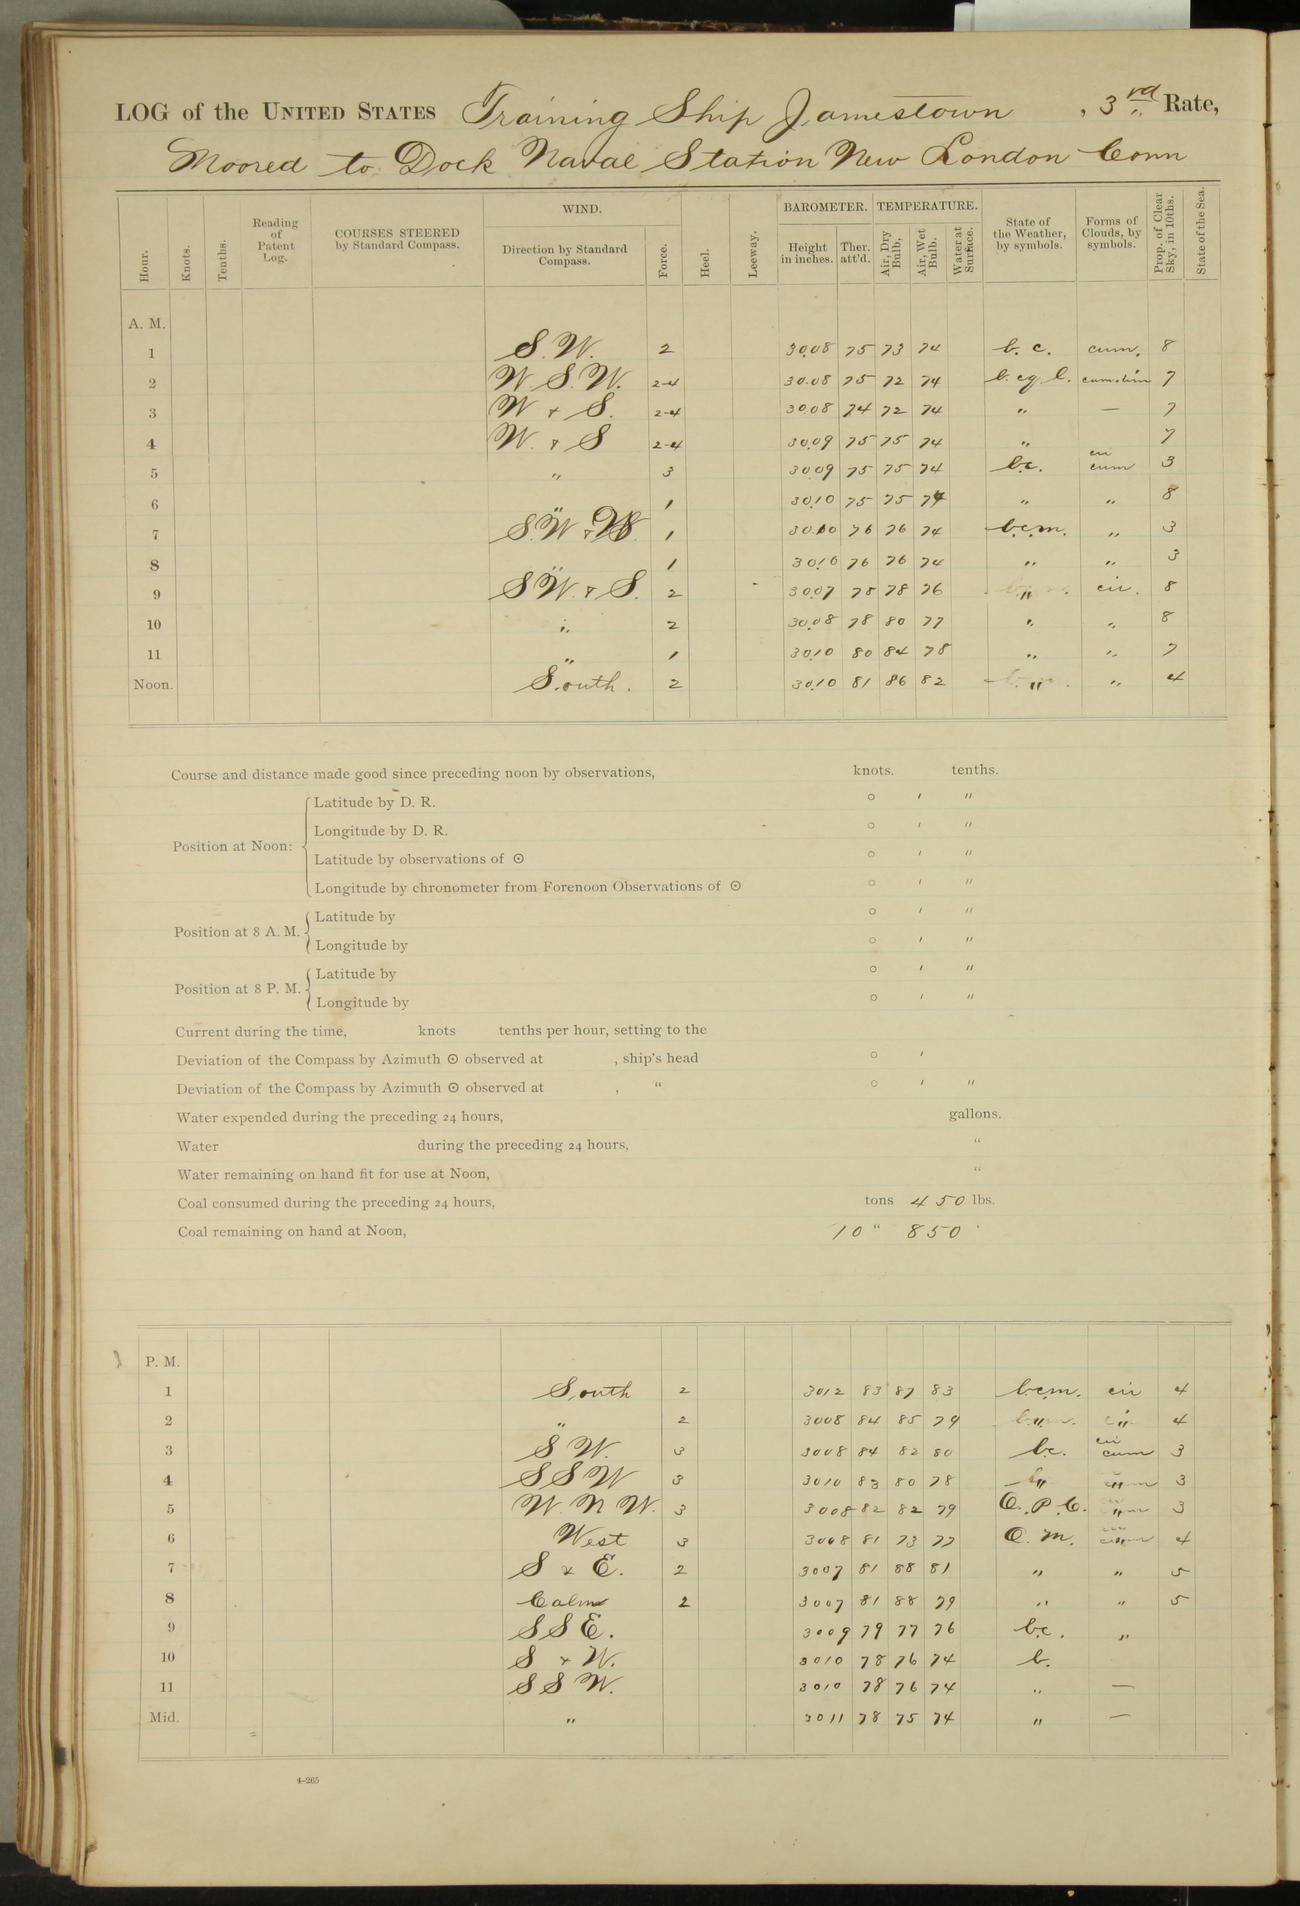 LOG of the UNITED STATES Training Ship Jamestown , 3rd Rate,
Moored to Dock Naval Station New London Conn
Hour. Knots. Tenths. Reading of Patent Log. COURSES STEERED by Standard Compass. WIND. Direction by Standard Compass. Force. Heel. Leeway. BAROMETER. Height in inches. Ther. att'd. TEMPERATURE. Air, Dry Bulb, Air, Wet Bulb. Water at Surface. State of the Weather, by symbols. Forms of Clouds, by symbols. Prop. of Clear Sky, in 10ths. State of the Sea.
A. M.
1 S. W. 2 30.08 75 73 74 b. c. cum. 8
2 W. S. W. 2-4 30.08 75 72 74 7
3 W & S. 2-4 30.08 74 72 74 " — 7
4 W. & S 2-4 30.09 75 75 74 " 7
5 " 3 30.09 75 75 74 b.c. cir cum 3
6 " 1 30.10 75 75 74 " " 8
7 S. W & 1 76 76 74 b.c.m. " 3
8 " 1 30.10 76 76 74 " " 3
9 S W. & S. 2 30.07 78 78 76 " cir. 8
10 " 2 30.08 78 80 77 " " 8
11 " 1 30.10 80 84 78 " " 7
Noon. South. 2 30.10 81 86 82 " " 4
Course and distance made good since preceding noon by observations, knots. tenths.
Position at Noon:
Latitude by D. R. ° ′ ″
Longitude by D. R. ° ′ ″
Latitude by observations of ⊙ ° ′ ″
Longitude by chronometer from Forenoon Observations of ⊙ ° ′ ″
Position at 8 A. M.
Latitude by ° ′ ″
Longitude by ° ′ ″
Position at 8 P. M.
Latitude by ° ′ ″
Longitude by ° ′ ″
Current during the time, knots tenths per hour, setting to the
Deviation of the Compass by Azimuth ⊙ observed at , ship's head ° ′
Deviation of the Compass by Azimuth ⊙ observed at , " ° ′ ″
Water expended during the preceding 24 hours, gallons.
Water during the preceding 24 hours, "
Water remaining on hand fit for use at Noon, "
Coal consumed during the preceding 24 hours, tons 450 lbs.
Coal remaining on hand at Noon, 10 " 850 '
P. M.
1 South 2 3012 83 87 83 b.c.m. cir 4
2 " 2 3008 84 85 79 " " 4
3 S W. 3 3008 84 82 80 b.c. cir cum 3
4 S S W 3 3010 83 80 78 " " 3
5 W. N W. 3 3008 82 82 79 O. P. C. " 3
6 West 3 3008 81 73 77 O. m. " 4
7 S & E. 2 3007 81 88 81 " " 5
8 Calm 2 3007 81 88 79 " " 5
9 S S E. 3009 79 77 76 b.c. "
10 S & W. 3010 78 76 74 b.
11 S S W. 3010 78 76 74 " —
Mid. " 3011 78 75 74 " —
4–265